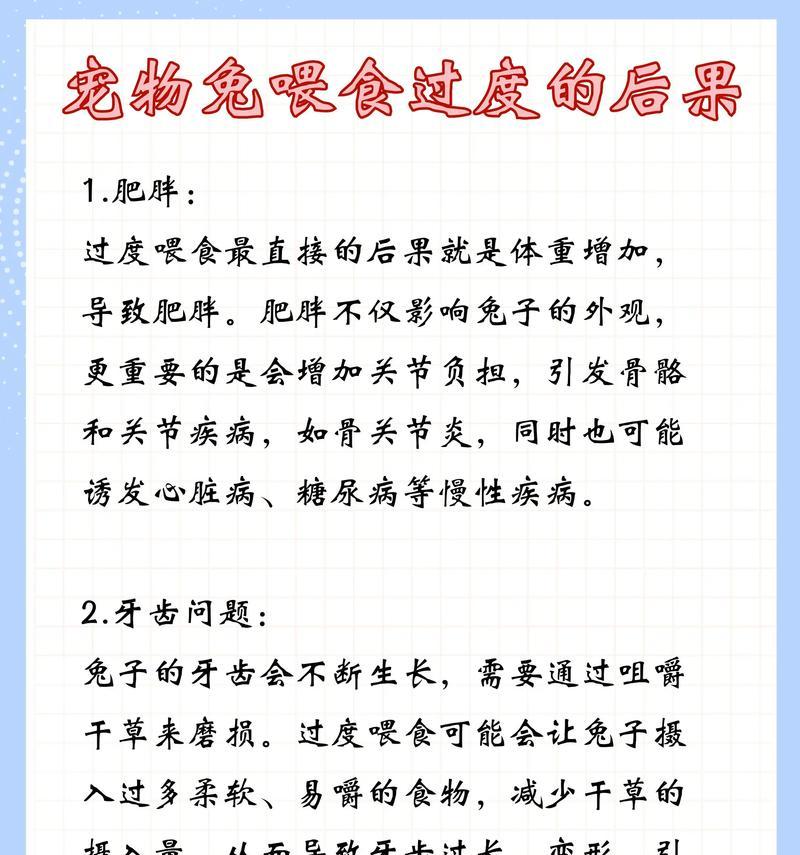 宠物兔喂食过度的后果
1.肥胖：
过度喂食最直接的后果就是体重增加，
导致肥胖。肥胖不仅影响兔子的外观，
更重要的是会增加关节负担，引发骨骼
和关节疾病，如骨关节炎，同时也可能
诱发心脏病、糖尿病等慢性疾病。
2.牙齿问题：
兔子的牙齿会不断生长，需要通过咀嚼
干草来磨损。过度喂食可能会让兔子摄
入过多柔软、易嚼的食物，减少干草的
摄入量，从而导致牙齿过长、变形，引